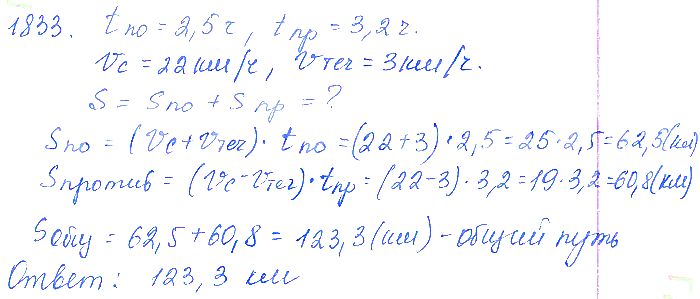 1833. tпо = 2,5 ч, tпр = 3,2 ч.
Vс = 22 км/ч, Vтеч = 3 км/ч.
S = Sпо + Sпр = ?
Sпо = (Vс + Vтеч) · tпо = (22+3) · 2,5 = 25 · 2,5 = 62,5 (км)
Sпротив = (Vс - Vтеч) · tпр = (22-3) · 3,2 = 19 · 3,2 = 60,8 (км)
Sобщ = 62,5 + 60,8 = 123,3 (км) - общий путь
Ответ: 123,3 км